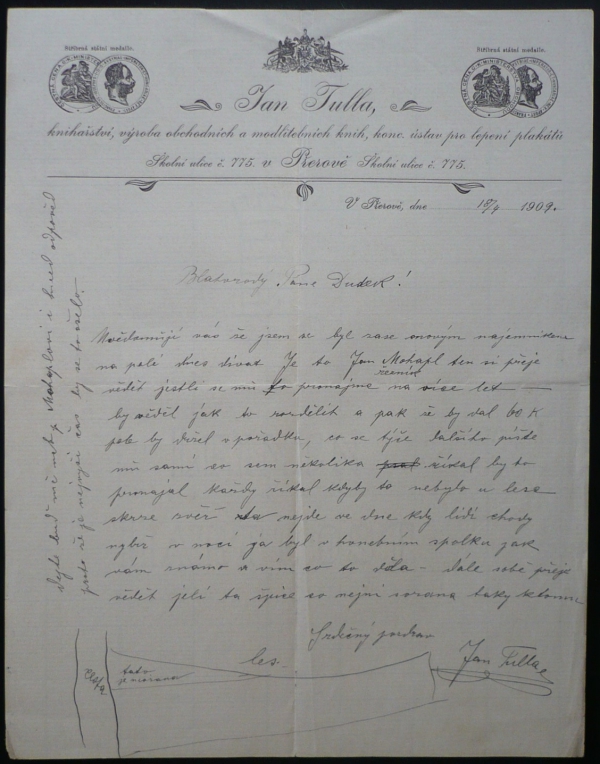 Stříbrná státní medaile.
Stříbrná státní medaile.
Jan Tulla,
knihařství, výroba obchodních a modlitebních knih, konc. ústav pro lepení plakátů
Školní ulice č. 775. v Přerově Školní ulice č. 775.
V Přerově, dne 18/9 1909.
Blahorodý Pane Dudek!
vás že jsem se byl zase s novým
na polé dnes dívat Je to Jan Mohapl ten si přeje
řezník
vědět jestli se mu to pronajme na více let
by věděl jak to rozdělit a pak že by dal 60 K
pole by držel v pořádku, co se týče dalšího pište
mu sami co sem několika říkal by to
pronajal každý říkal kdyby to nebylo u lesa
skrze zvěř nejde ve dne kdy lidi chody
v noci já byl v honebním spolku jak
vám známo a vím co to děla – dále sobě přeje
vědět jeli ta špice co nejní zorana taky k tomu
Srdečný pozdrav
Jan Tulla
dejte buď mě neb p. Mohaplovi hned odpověd
proto že je nejvyší čas by se to oselo.
cesta
tato
les.